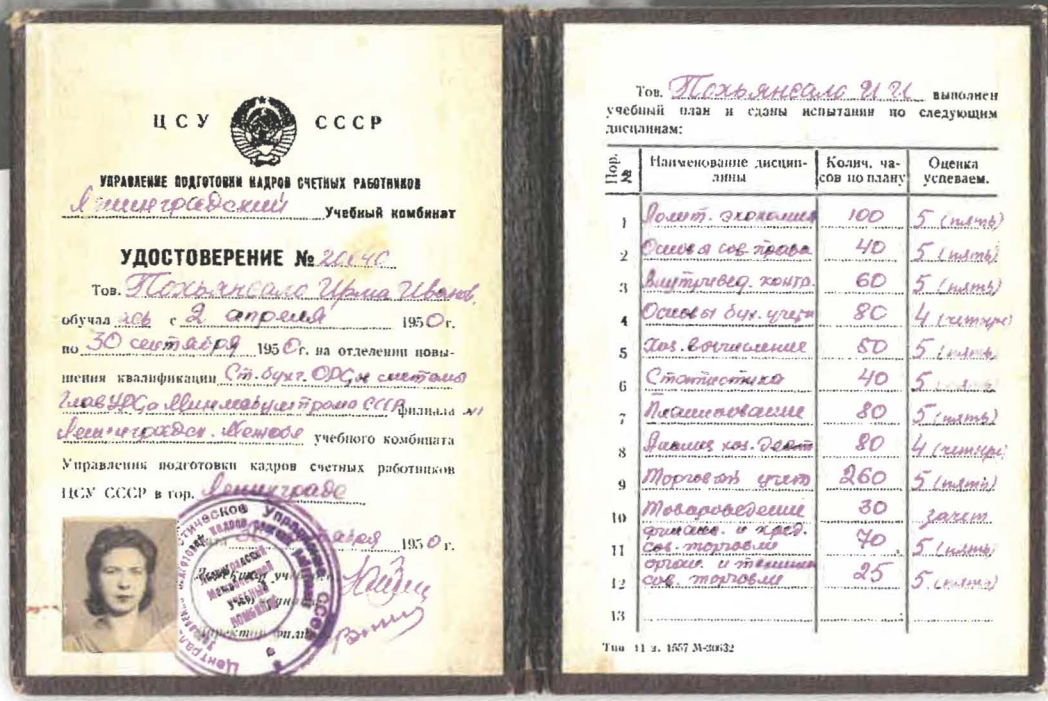 ЦСУ СССР
УПРАВЛЕНИЕ ПОДГОТОВКИ КАДРОВ СЧЕТНЫХ РАБОТНИКОВ
Ленинградский Учебный комбинат
УДОСТОВЕРЕНИЕ №
Тов. Похьянсало Ирма Иванов.
обучалась с 2 апреля 1950 г.
по 30 сентября 1950 г. на отделении повы-
шения квалификации Ст. бухг. ОРС,а системы
филиала №1
Ленинградск. Межобл учебного комбината
Управления подготовки кадров счетных работников
ЦСУ СССР в гор. Ленинграде
1950 г.
Тов. Похьянсало И И выполнен
учебный план и сданы испытания по следующим
дисциплинам:
Пор. № Наименование дисцип-лины Колич. ча-сов по плану Оценка успеваем.
1 Полит. экономия 100 5 (пять)
2 Основы сов. права 40 5 (пять)
3 Внутривед. контр. 60 5 (пять)
4 Основы бух. учета 80 4 (четыре)
5 Хоз. вычисление 50 5 (пять)
6 Статистика 40 5
7 Планирование 80 5 (пять)
8 Анализ хоз. деят 80 4 (четыре)
9 Торговый учет 260 5 (пять)
10 Товароведение 30 зачет
11 финанс. и кред. сов. торговли 70 5 (пять)
12 орган. и техника сов. торговли 25 5 (пять)
13
Тип 11 з. 1557 М-30632